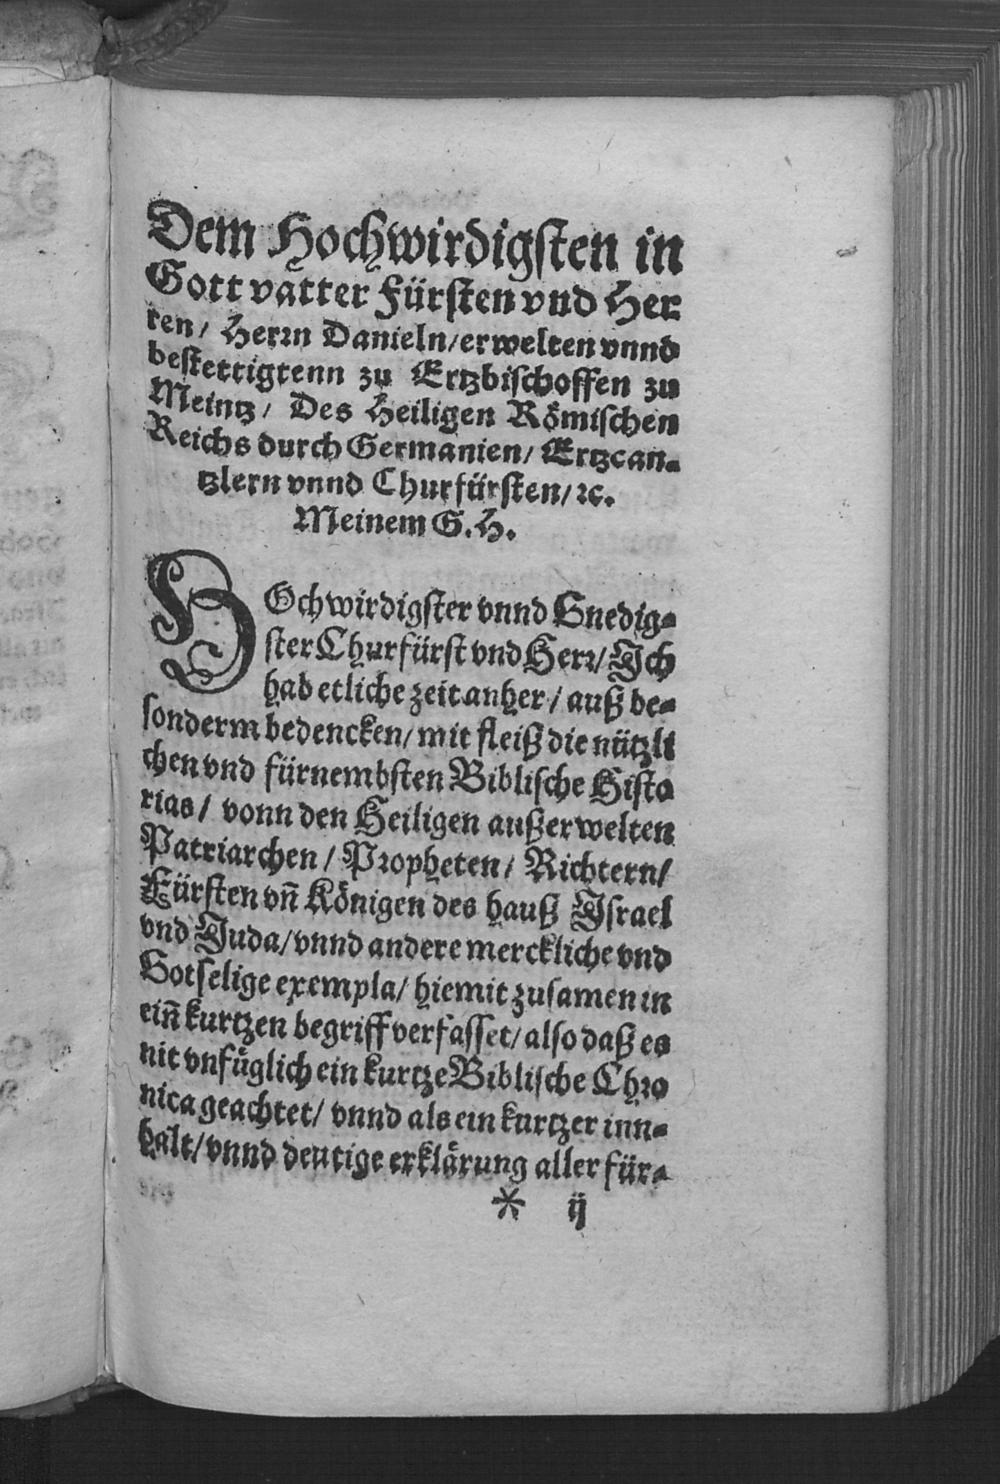 Dem Hochwirdigsten in
Gott vatter Fürsten vnd Her
ren / Herrn Danieln / erwelten vnnd
bestettigtenn zu Ertzbischoffen zu
Meintz / Des Heiligen Römischen
Reichs durch Germanien / Ertzcan-
tzlern vnnd Churfürsten / ꝛc.
Meinem G. H.
HOchwirdigster vnnd Gnedig-
ster Churfürst vnd Herr / Ich
hab etliche zeit anher / auß be-
sonderm bedencken / mit fleiß die nützli
chen vnd fürnembsten Biblische Histo
rias / vonn den Heiligen außerwelten
Patriarchen / Propheten / Richtern /
Fürsten vn̄ Königen des hauß Israel
vnd Juda / vnnd andere merckliche vnd
Gotselige exempla / hiemit zusamen in
ein̄ kurtzen begriff verfasset / also daß es
nit vnfüglich ein kurtze Biblische Chro
nica geachtet / vnnd als ein kurtzer inn-
halt / vnnd deutige erklärung aller für-
* ij